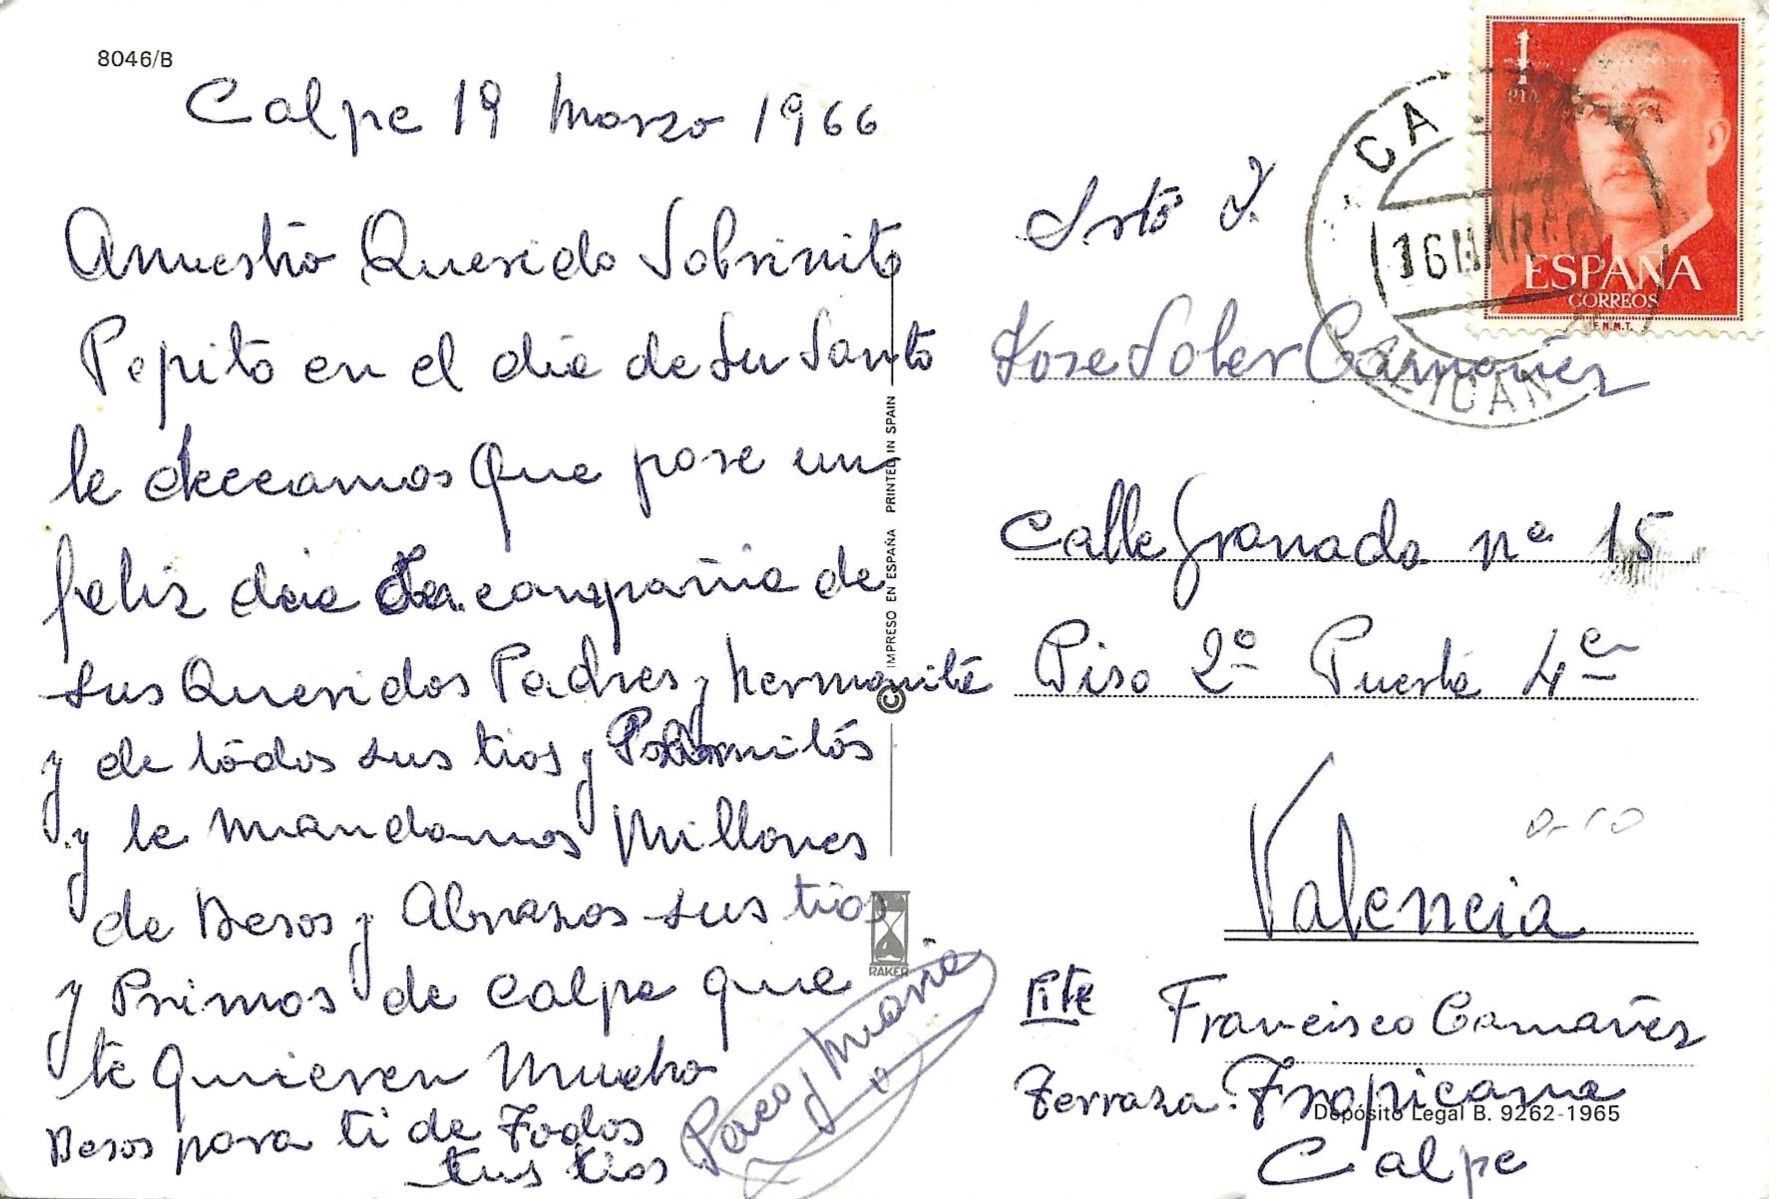 8046/B
Calpe 19 Marzo 1966
Anuestro Querido Sobrinito
Pepito en el dia de su Santo
le deceamos que pase un
feliz dia compañia de
sus Queridos Padres y hermanita
y de todos sus tios y
y le mandamos Millones
de Besos y Abrazos sus tios
y Primos de Calpe que
te Quieren Mucho
Besos para ti de Todos
tus tios
Paco y Maria
IMPRESO EN ESPAÑA PRINTED IN SPAIN
©
RAKER
1 PTA
ESPAÑA
CORREOS
F.N.M.T.
CA
16 MAR
ALICAN
Srto D.
Jose Soler Camañez
Calle Granada nº 15
Piso 2º Puerta 4ª
Valencia
Rte Francisco Camañez
Terraza Tropicana
Depósito Legal B. 9262-1965
Calpe